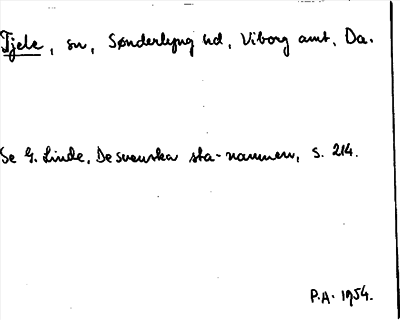 Tjele, sn, Sønderlyng hd, Viborg amt, Da.
Se G. Linde, De svenska sta-namnen, s. 214.
P.A. 1954.